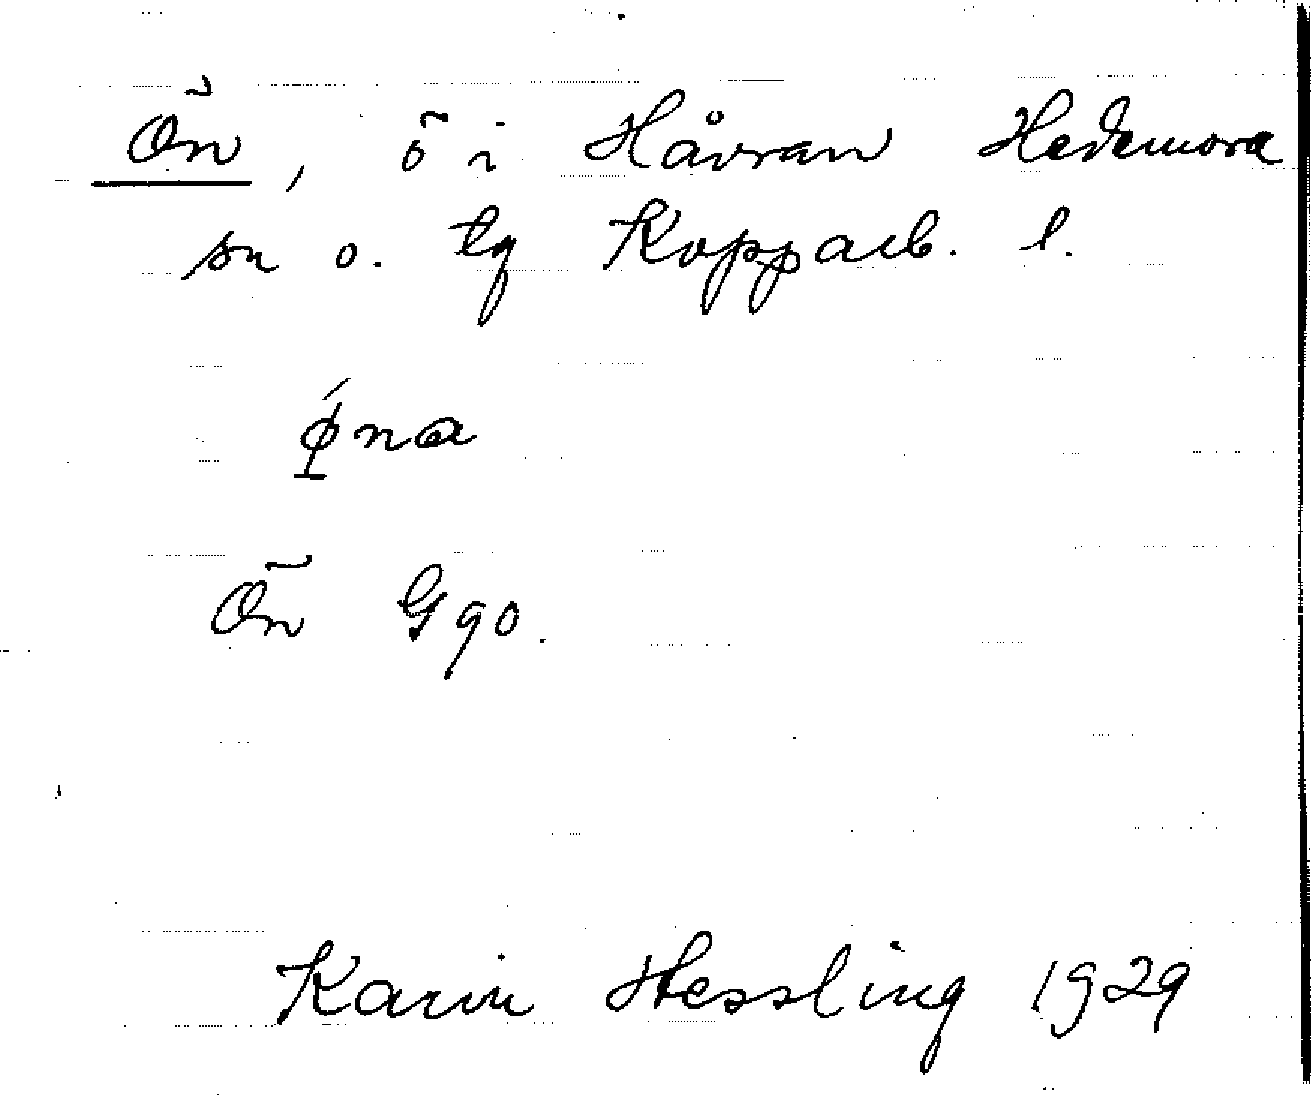 Ön, ö i Håvran Hedemora
sn o. tg Kopparb. l.
ǿna
Ön G90.
Karin Hessling 1929